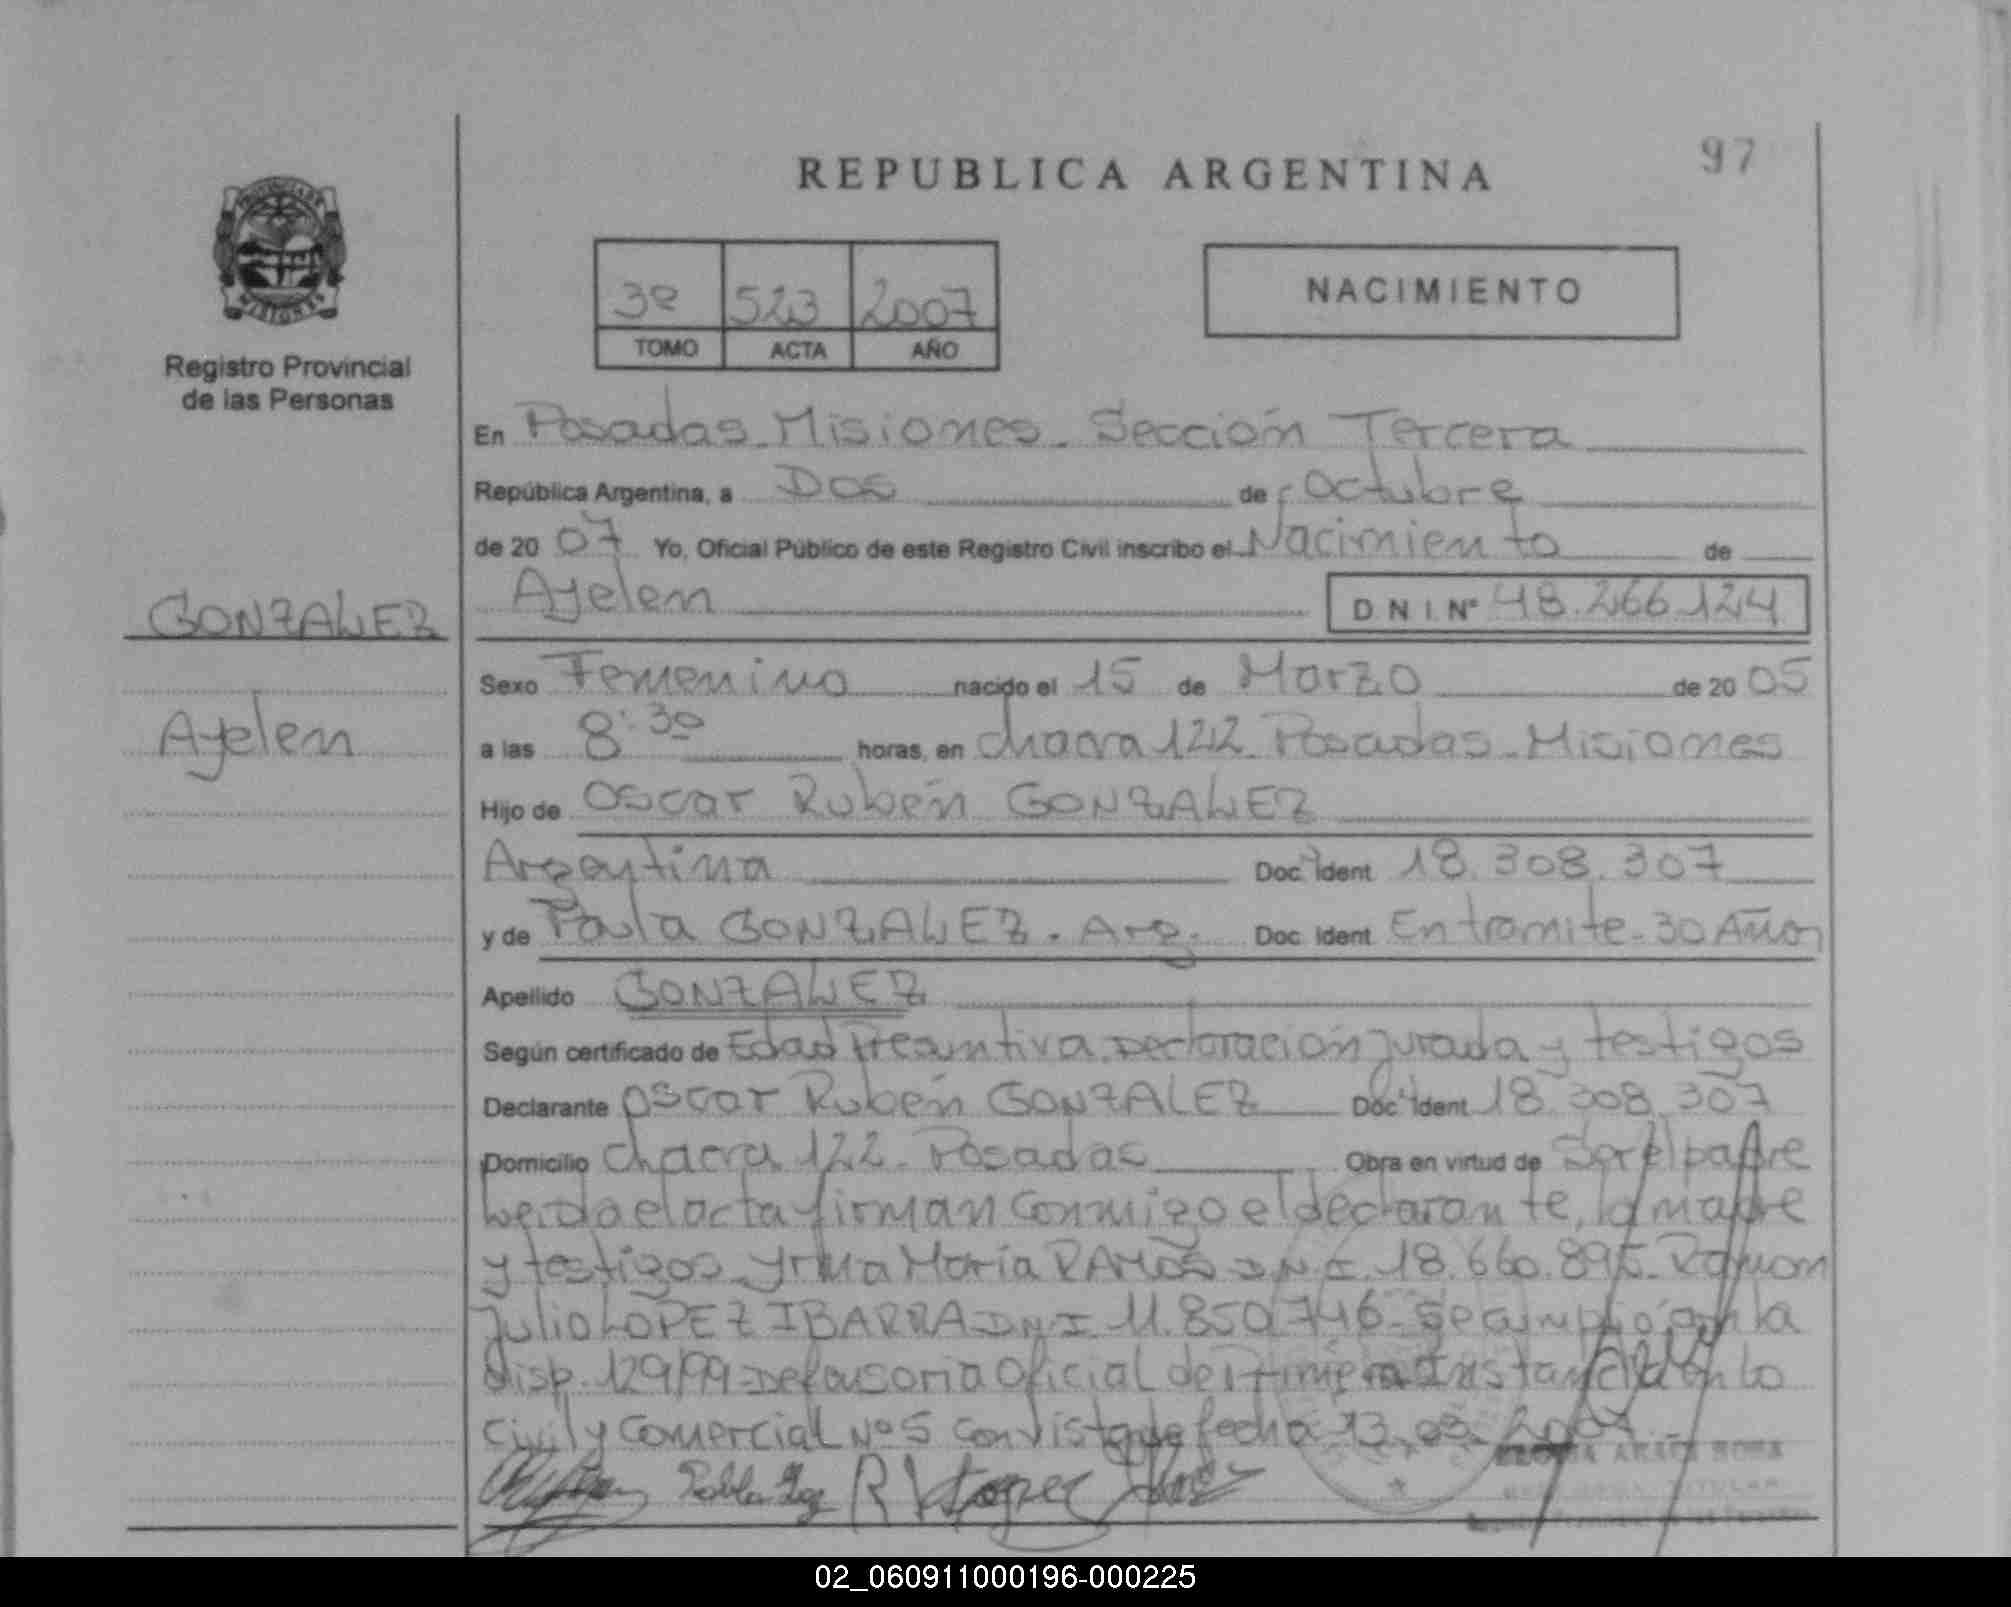 97
REPUBLICA ARGENTINA
PROVINCIA DE
MISIONES
Registro Provincial
de las Personas
3º 523 2007
TOMO ACTA AÑO
NACIMIENTO
En Posadas - Misiones - Sección Tercera
República Argentina, a Dos de Octubre
de 2007 Yo, Oficial Público de este Registro Civil inscribo el Nacimiento de
Ayelen D N I. Nº 48.266.124
GONZALEZ
Ayelen
Sexo Femenino nacido el 15 de Marzo de 2005
a las 8:30 horas, en chacra 122 - Posadas - Misiones
Hijo de Oscar Rubén GONZALEZ
Argentina Doc. Ident 18.308.307
y de Paula GONZALEZ. Arg. Doc Ident En tramite - 30 Años
Apellido GONZALEZ
Según certificado de Edad Presuntiva, Declaración Jurada y testigos
Declarante Oscar Rubén GONZALEZ Doc. Ident 18.308.307
Domicilio chacra 122 - Posadas Obra en virtud de Ser el padre
Leida el acta firman conmigo el declarante, la madre
y testigos Yrma María RAMOS D.N.I. 18.660.895 - Ramon
Julio LOPEZ IBARRA D.N.I. 11.850.746 - Se cumplió con la
disp. 129/99 - Defensoria Oficial de Primera Instancia en lo
Civil y Comercial Nº 5 con vista de fecha 13.03.2007
R Lopez
02_060911000196-000225